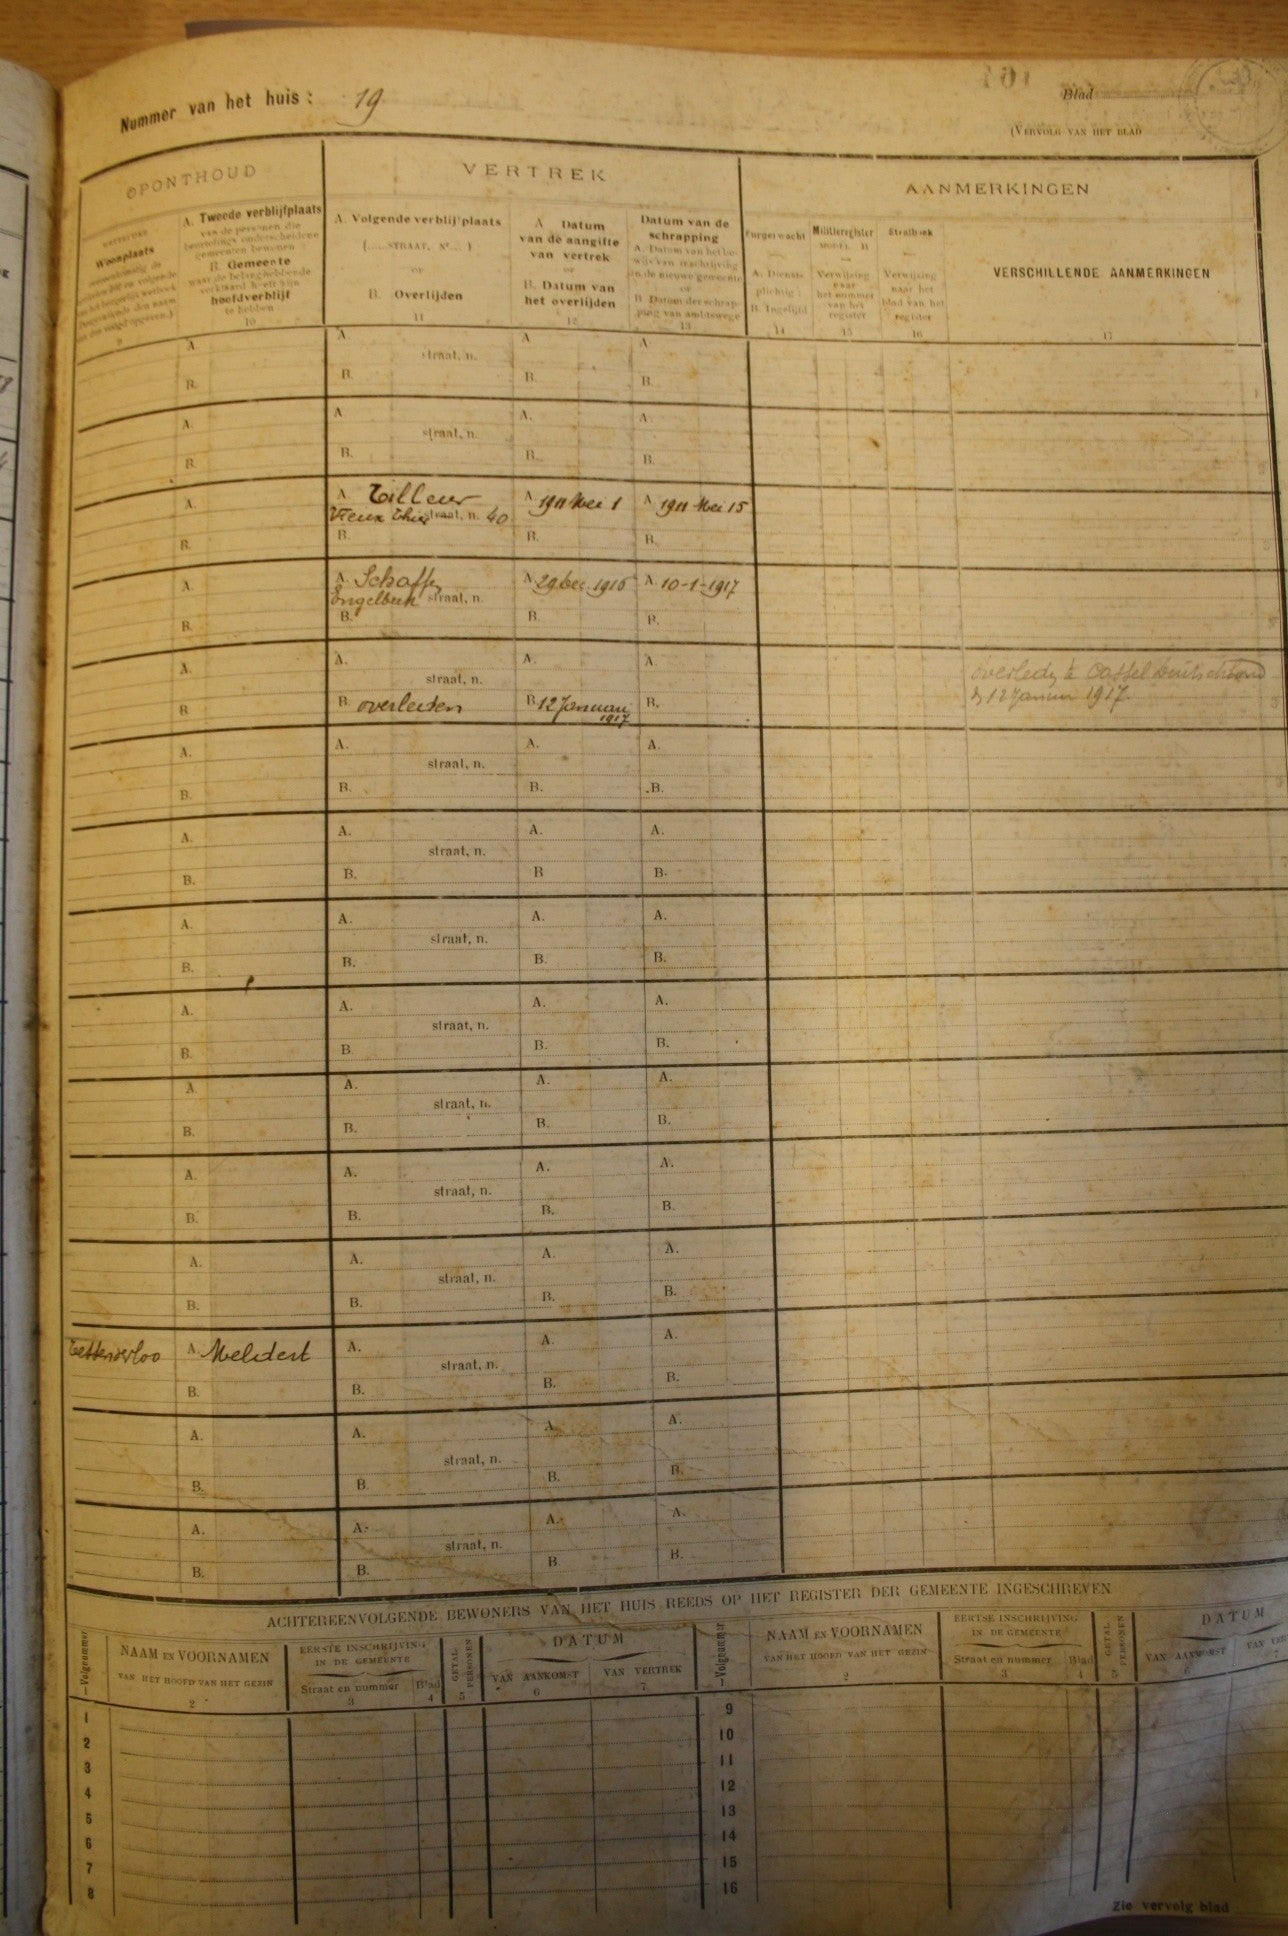 Nummer van het huis : 19
Blad
(VERVOLG VAN HET BLAD
OPONTHOUD
VERTREK
AANMERKINGEN
Woonplaats
9
A. Tweede verblijfplaats
van de personen die
beurtelings onderscheidene
gemeenten bewonen
B. Gemeente
waar de belanghebbende
verklaard heeft zijn
hoofdverblijf
te hebben
10
A. Volgende verblijfplaats
(.....STRAAT, Nr... )
OF
B. Overlijden
11
A Datum
van de aangifte
van vertrek
OF
B. Datum van
het overlijden
12
Datum van de
schrapping
A. Datum van het be-
wijs van inschrijving
in de nieuwe gemeente
OF
B Datum der schrap-
ping van ambtswege
13
Burgerwacht
A. Dienst-
plichtig :
B. Ingelijfd
14
Militieregister
MODEL
Verwijzing
naar
het nummer
van het
register
15
Strafboek
Verwijzing
naar het
blad van het
register
16
VERSCHILLENDE AANMERKINGEN
17
A A. A A
straat, n.
B. B. B. B.
A. A A. A
straat, n.
B. B. B. B.
A. A Tilleur A 1911 Mei 1 A 1911 Mei 15
Vieux straat, n. 40
B. B. B. B.
A A. Schaffen A 29 dec. 1916 A. 10-1-1917
Engelbeek straat, n.
B. B. B. B.
A. A. A. A. overleden te Cassel Duitschland
straat, n. 12 Januari 1917.
B B. overleden B 12 Januari B.
1917
A. A. A. A.
straat, n.
B. B. B. B.
A. A. A. A.
straat, n.
B. B. B B.
A. A. A. A.
straat, n.
B. B. B. B.
A. A. A. A.
straat, n.
B. B. B. B.
A. A. A. A.
straat, n.
B. B. B. B.
A. A. A. A.
straat, n.
B. B. B. B.
A. A. A. A.
straat, n.
B. B. B. B.
Tessenderloo A. Meldert A. A. A.
straat, n.
B. B. B. B.
A. A. A. A.
straat, n.
B. B. B. B.
A. A. A. A.
straat, n.
B. B. B B.
ACHTEREENVOLGENDE BEWONERS VAN HET HUIS REEDS OP HET REGISTER DER GEMEENTE INGESCHREVEN
Volgnummer
NAAM EN VOORNAMEN
VAN HET HOOFD VAN HET GEZIN
2
EERSTE INSCHRIJVING
IN DE GEMEENTE
Straat en nummer
3
Blad
4
GETAL PERSONEN
5
DATUM
VAN AANKOMST
6
VAN VERTREK
7
Volgnummer
NAAM EN VOORNAMEN
VAN HET HOOFD VAN HET GEZIN
2
EERTSE INSCHRIJVING
IN DE GEMEENTE
Straat en nummer
3
Blad
4
GETAL PERSONEN
5
DATUM
VAN AANKOMST
6
VAN VER
7
1 9
2 10
3 11
4 12
5 13
6 14
7 15
8 16
Zie vervolg blad